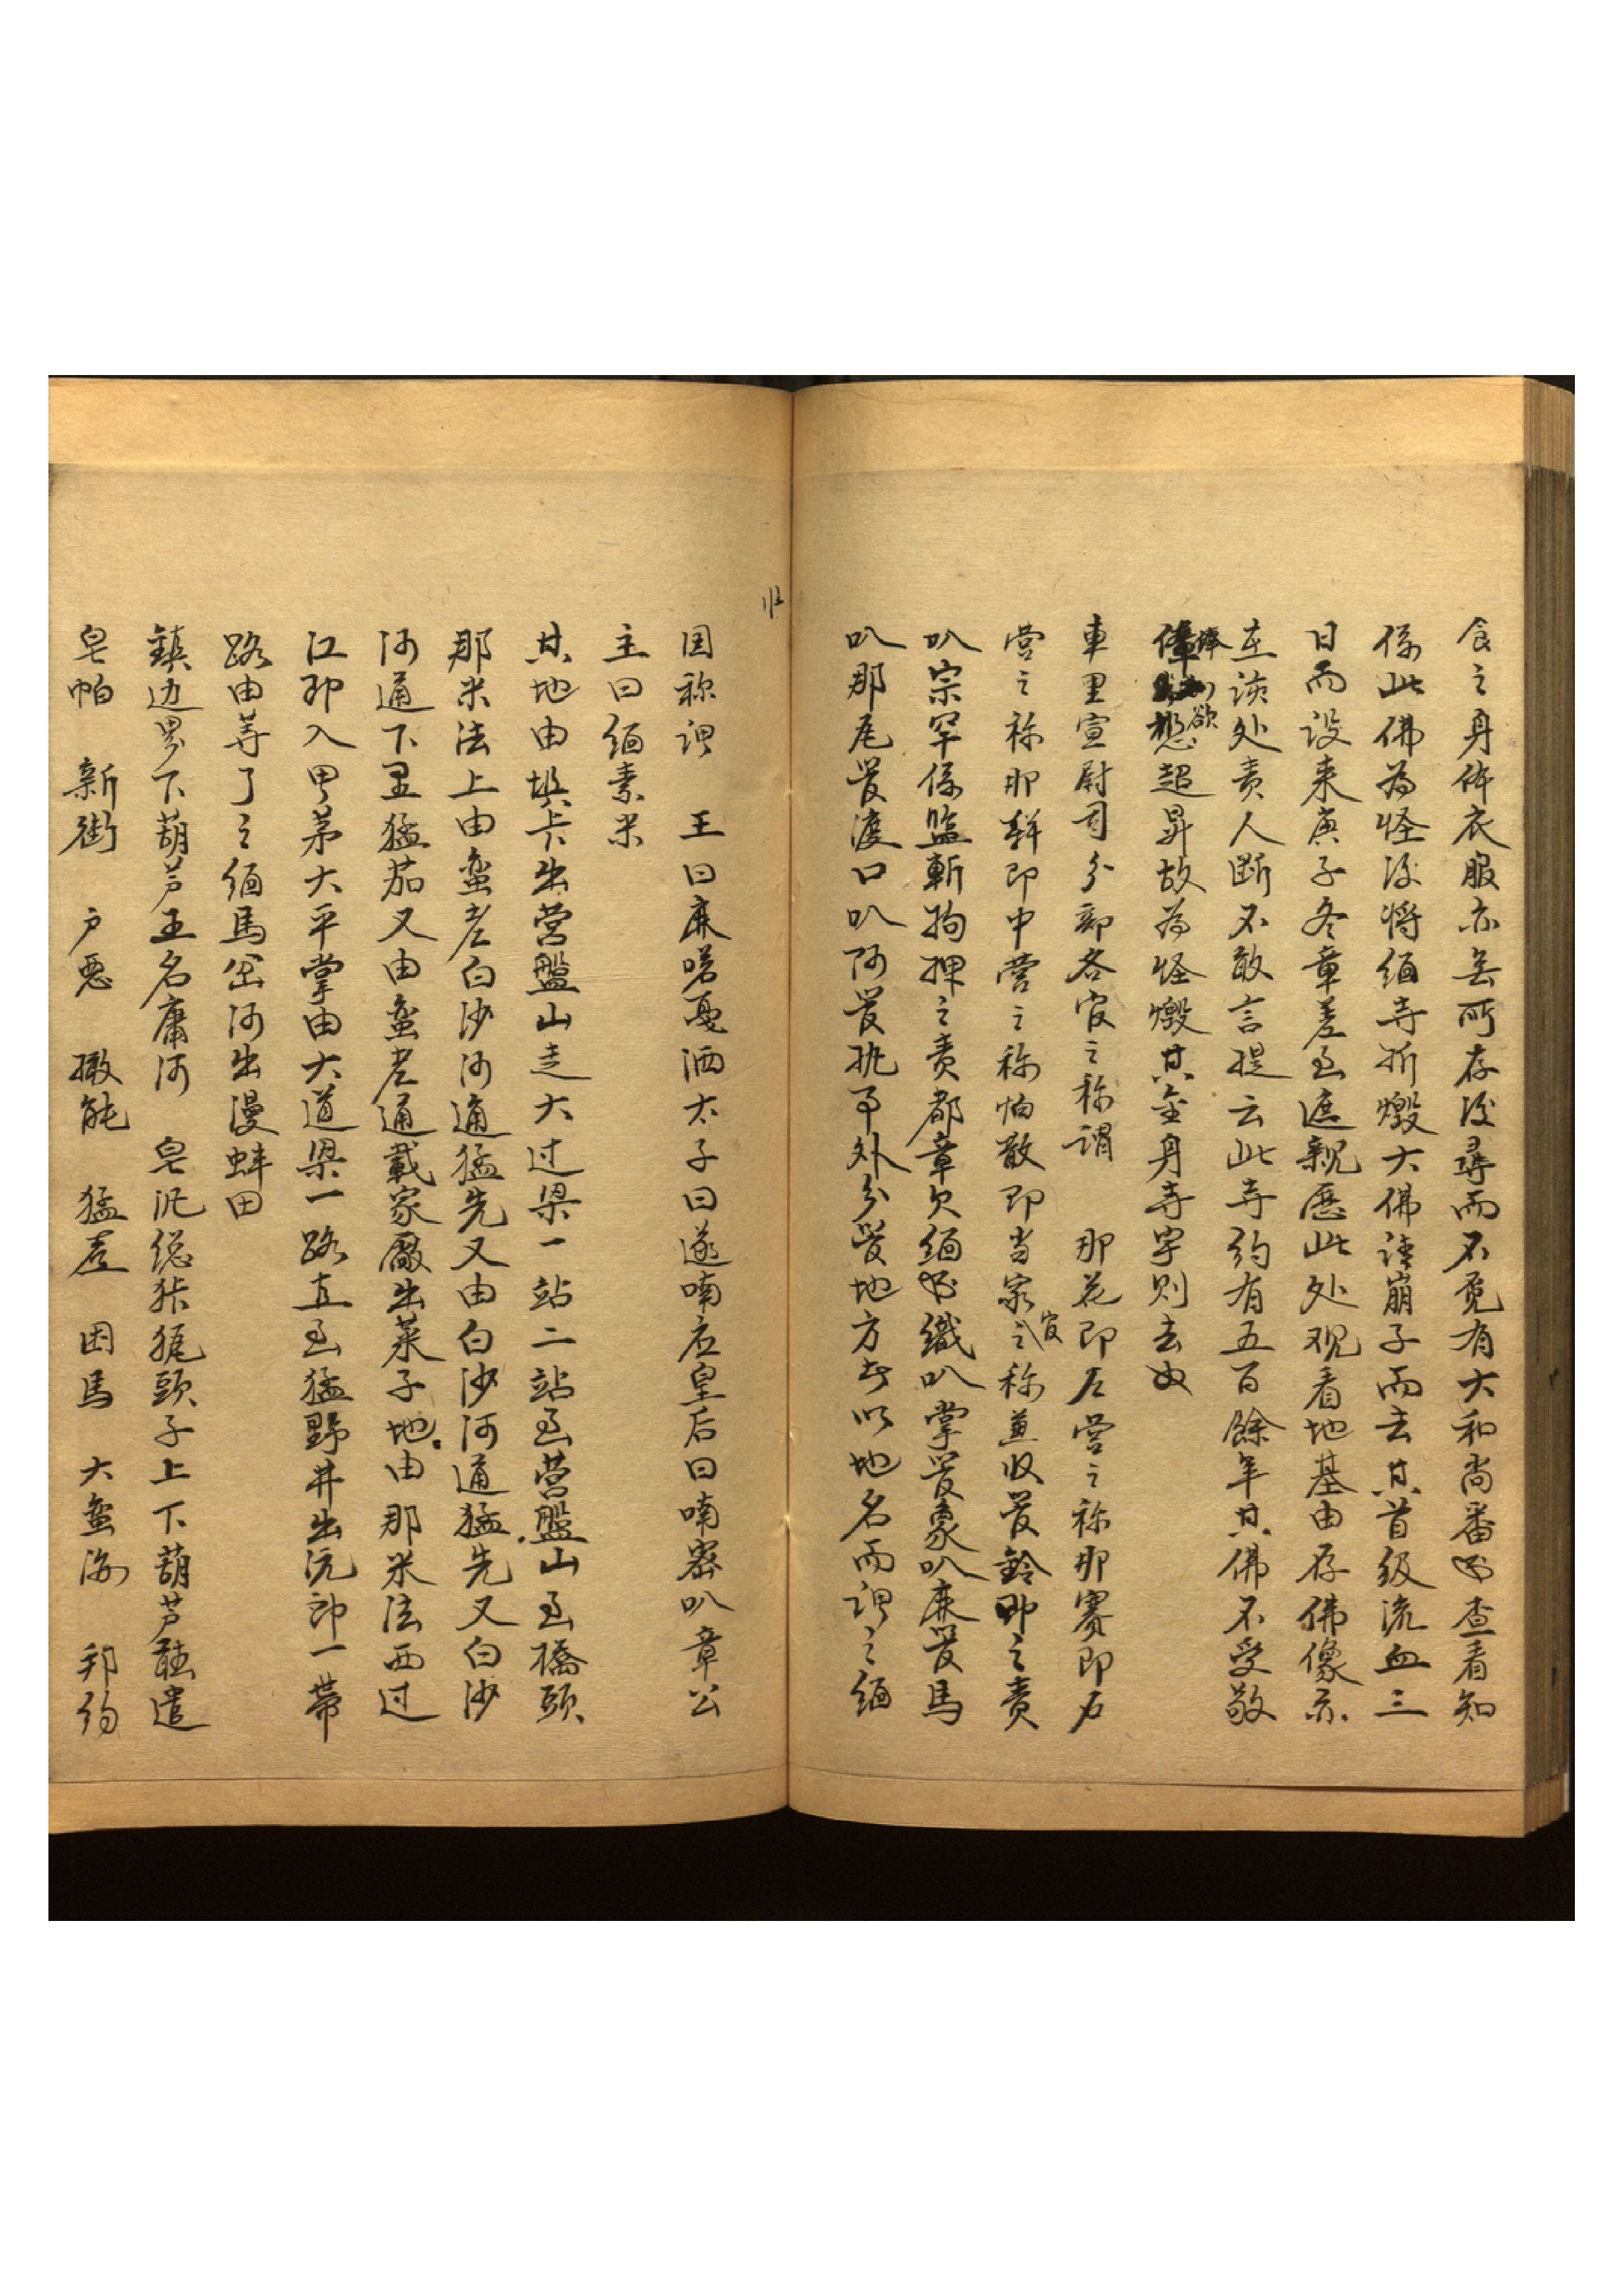 食之身体衣服亦無所存後尋而不覓有大和尚番出查看知
係此佛為怪後將緬寺拆燬大佛議崩子而去其首級流血三
日而設来庚子冬章差至遮親歷此处观看地基由存佛像示
在該处责人断不敢言提云此寺約有五百餘年其佛不受敬
俸欲想超昇故為怪燬其金身寺字则去
車里宣尉司分部各官之称謂 那花即左营之称那賽即右
营之称那幹即中营之称怕散即当家官之称兼收管鈴即之责
叭宗罕係監斬拘押之责都章欠緬出織叭掌管象叭麻管馬
叭那尾管渡口叭阿管挑事外分管地方者以地名而謂之緬
国称謂 王曰麻喏戛洒太子曰遂喃应皇后曰喃密叭章公
主曰緬素米
其地由垻卡出营盤山走大过梁一站二站至营盤山至橋頭
那米法上由蛮老白沙河通猛先又由白沙河通猛先又白沙
河通下里猛茄又由蛮老通戴家厰出菜子地由那米法西过
江即入甲茅大平掌由大道梁一路直至猛野井出沅郎一带
路由蕁了之緬馬岔河出漫蚌田
鎮边界下葫芦王名庸河 皂沉總狇猑頭子上下葫芦酤遣
皂帕 新街 户恶 撒毷 猛茬 困馬 大蛮海 邦約